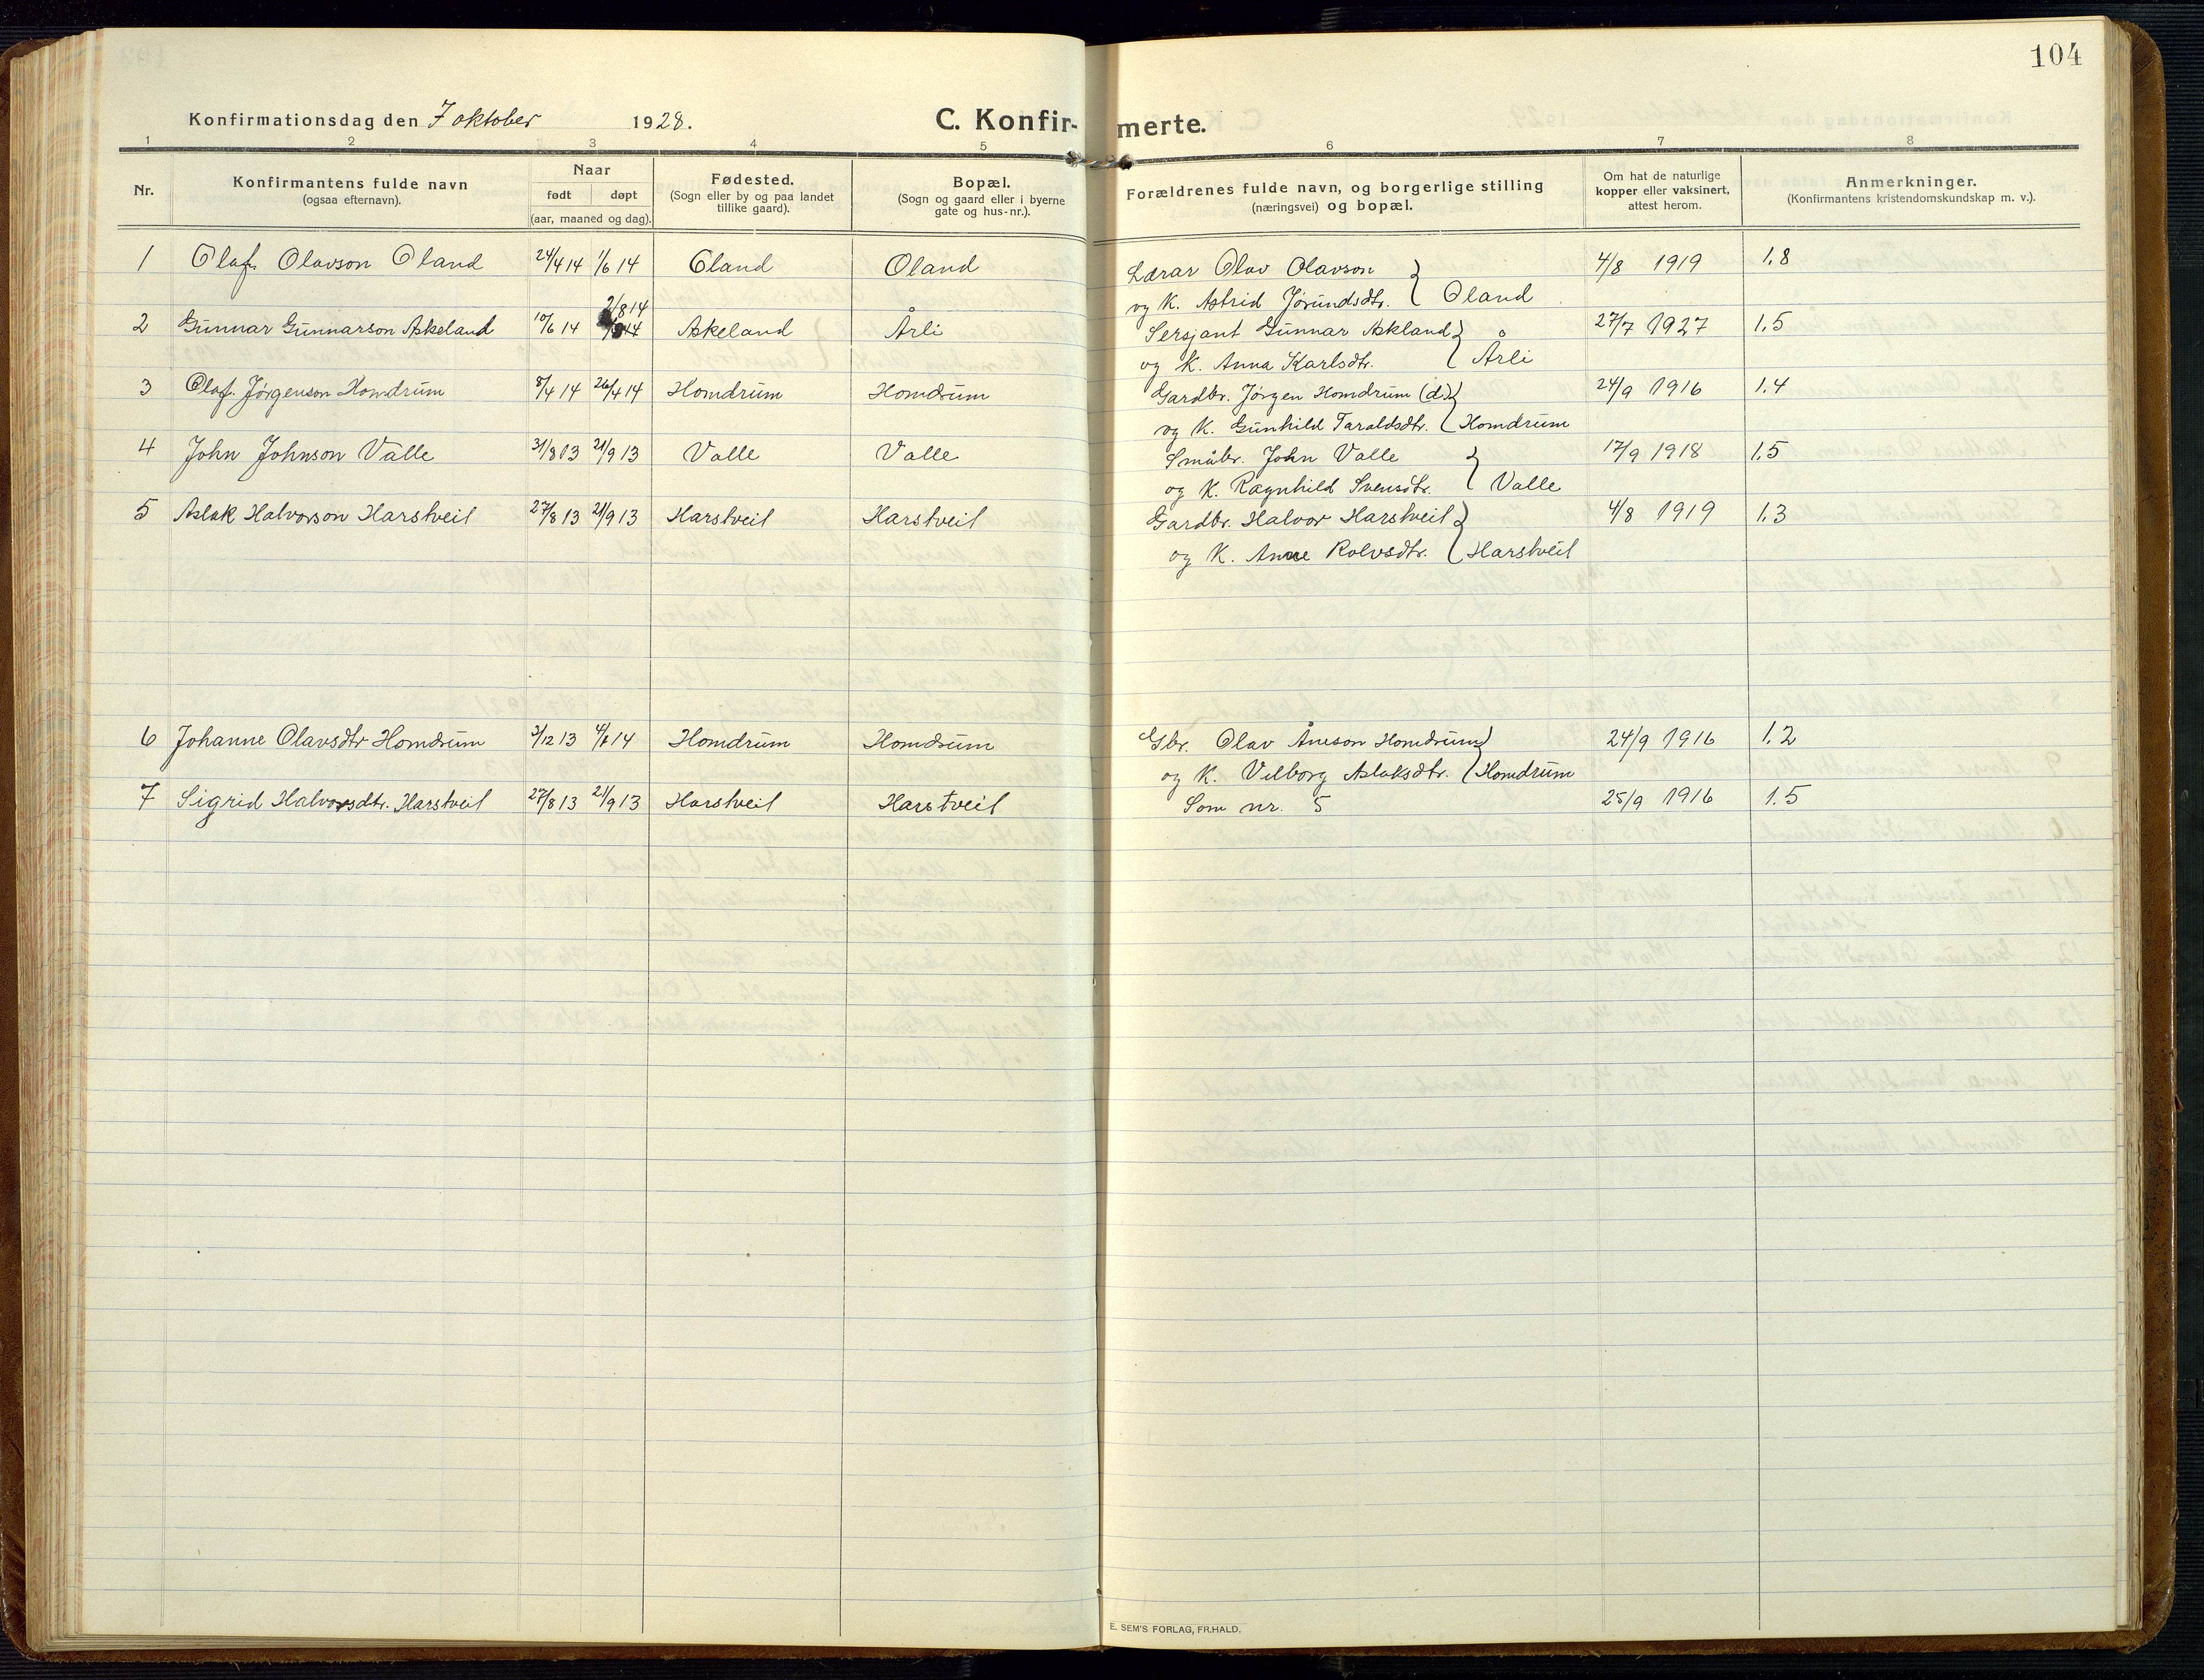 104
Konfirmationsdag den 7 oktober 1928.
C. Konfir-merte.
1 2 3 4 5 6 7 8
Nr.
Konfirmantens fulde navn
(ogsaa efternavn).
Naar
født døpt
(aar, maaned og dag).
Fødested.
(Sogn eller by og paa landet
tillike gaard).
Bopæl.
(Sogn og gaard eller i byerne
gate og hus-nr.).
Forældrenes fulde navn, og borgerlige stilling
(næringsvei) og bopæl.
Om hat de naturlige
kopper eller vaksinert,
attest herom.
Anmerkninger.
(Konfirmantens kristendomskundskap m. v.).
1 Olaf Olavson Oland 24/4 14 1/6 14 Oland Oland Lærar Olav Olavson 4/8 1919 1.8
og K. Astrid Jørundsdtr. } Oland
2/8 14
2 Gunnar Gunnarson Askeland 10/6 14 Askeland Årli Sersjant Gunnar Askland 27/7 1927 1.5
og K. Anna Karlsdtr. } Årli
3 Olaf Jørgenson Homdrum 8/4 14 26/4 14 Homdrum Homdrum Gardbr. Jørgen Homdrum (d.) 24/9 1916 1.4
og K. Gunhild Taraldsdtr. } Homdrum
4 John Johnson Valle 31/8 13 21/9 13 Valle Valle Småbr. John Valle 17/9 1918 1.5
og K. Ragnhild Svensdtr. } Valle
5 Aslak Halvorson Harstveit 27/8 13 21/9 13 Harstveit Harstveit Gardbr. Halvor Harstveit 4/8 1919 1.3
og K. Anne Rolvsdtr. } Harstveit
6 Johanne Olavsdtr Homdrum 3/12 13 14 Homdrum Homdrum Gbr. Olav Åneson Homdrum 24/9 1916 1.2
og K. Vilborg Aslaksdtr. } Homdrum
7 Sigrid Halvorsdtr. Harstveit 27/8 13 21/9 13 Harstveit Harstveit Som nr. 5 25/9 1916 1.5
E. SEM'S FORLAG, FR.HALD.